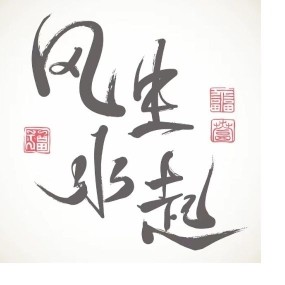 风生
水起